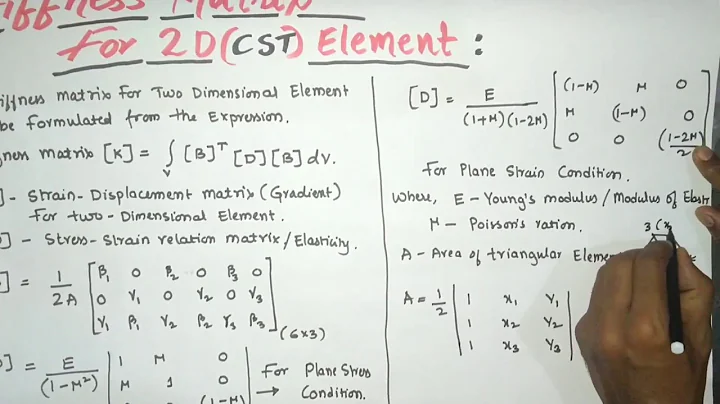 Stiffness Matrix
For 2D(CST) Element :
iffness matrix For Two Dimensional Element
be formulated from the Expression.
ness matrix [K] = ∫v [B]ᵀ [D] [B] dv.
]- Strain-Displacement matrix (Gradient)
For two-Dimensional Element.
] - Stress-Strain relation matrix/Elasticity.
] = 1/2A [β₁ 0 β₂ 0 β₃ 0
0 γ₁ 0 γ₂ 0 γ₃
γ₁ β₁ γ₂ β₂ γ₃ β₃] (6x3)
] = E/(1-μ²) | 1 μ 0
μ 1 0
(1-μ)
For Plane Stress
→ Condition.
[D] = E/(1+μ)(1-2μ) [(1-μ) μ 0
μ (1-μ) 0
0 0 (1-2μ)/2
For Plane Strain Condition.
Where, E - Young's modulus / Modulus of Elast
μ - Poisson's ration.
3 (x
A - Area of triangular Elem
A = 1/2 | 1 x₁ Y₁ |
1 x₂ Y₂
1 x₃ Y₃